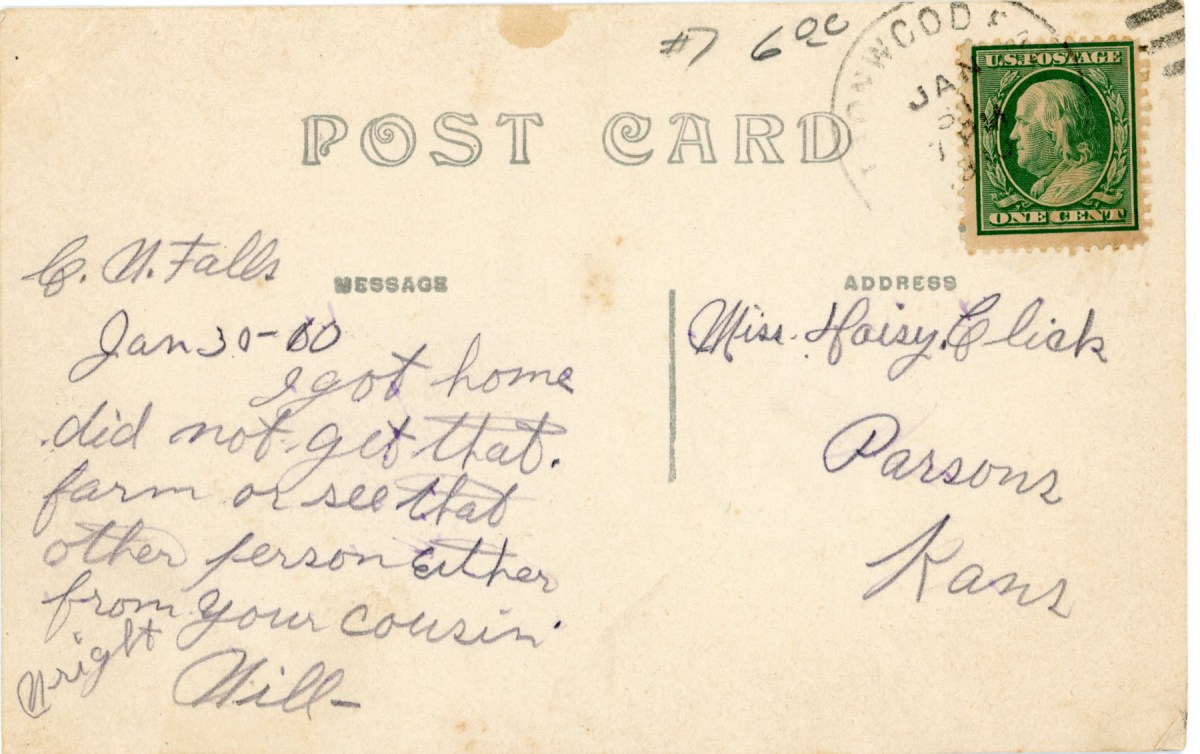 #7 6.00
TONWOOD
JAN
31
7 PM
U.S. POSTAGE
ONE CENT
POST CARD
MESSAGE
ADDRESS
C. W. Falls
Jan 30-10
I got home
did not get that.
farm or see that
other person either
from your cousin.
Wright
Will-
Miss. Daisy. Click
Parsons
Kans